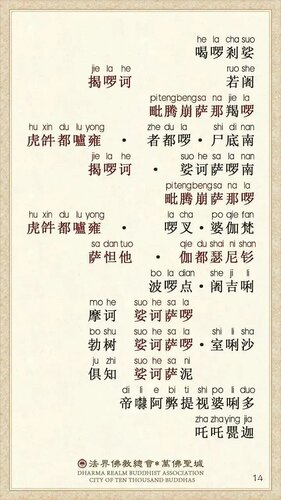 he la cha suo
喝啰剎娑
jie la he ruo she
揭啰诃 若阇
pitengbengsa na jie la
毗腾崩萨那羯啰
hu xin du lu yong zhe du la shi di nan
虎𤙖都嚧雍・者都啰・尸底南
jie la he suo he sa la nan
揭啰诃・娑诃萨啰南
pitengbengsa na la
毗腾崩萨那啰
hu xin du lu yong la cha po qie fan
虎𤙖都嚧雍・啰叉・婆伽梵
sa dan tuo qie du shai ni shan
萨怛他・伽都瑟尼钐
bo la dian she ji li
波啰点・阇吉唎
mo he suo he sa la
摩诃 娑诃萨啰
bo shu suo he sa la shi li sha
勃树 娑诃萨啰・室唎沙
ju zhi suo he sa ni
俱知 娑诃萨泥
di li e bi ti shi po li duo
帝㘑阿弊提视婆唎多
zha zha ying jia
吒吒甖迦
法界佛教總會・萬佛聖城
DHARMA REALM BUDDHIST ASSOCIATION
CITY OF TEN THOUSAND BUDDHAS
14